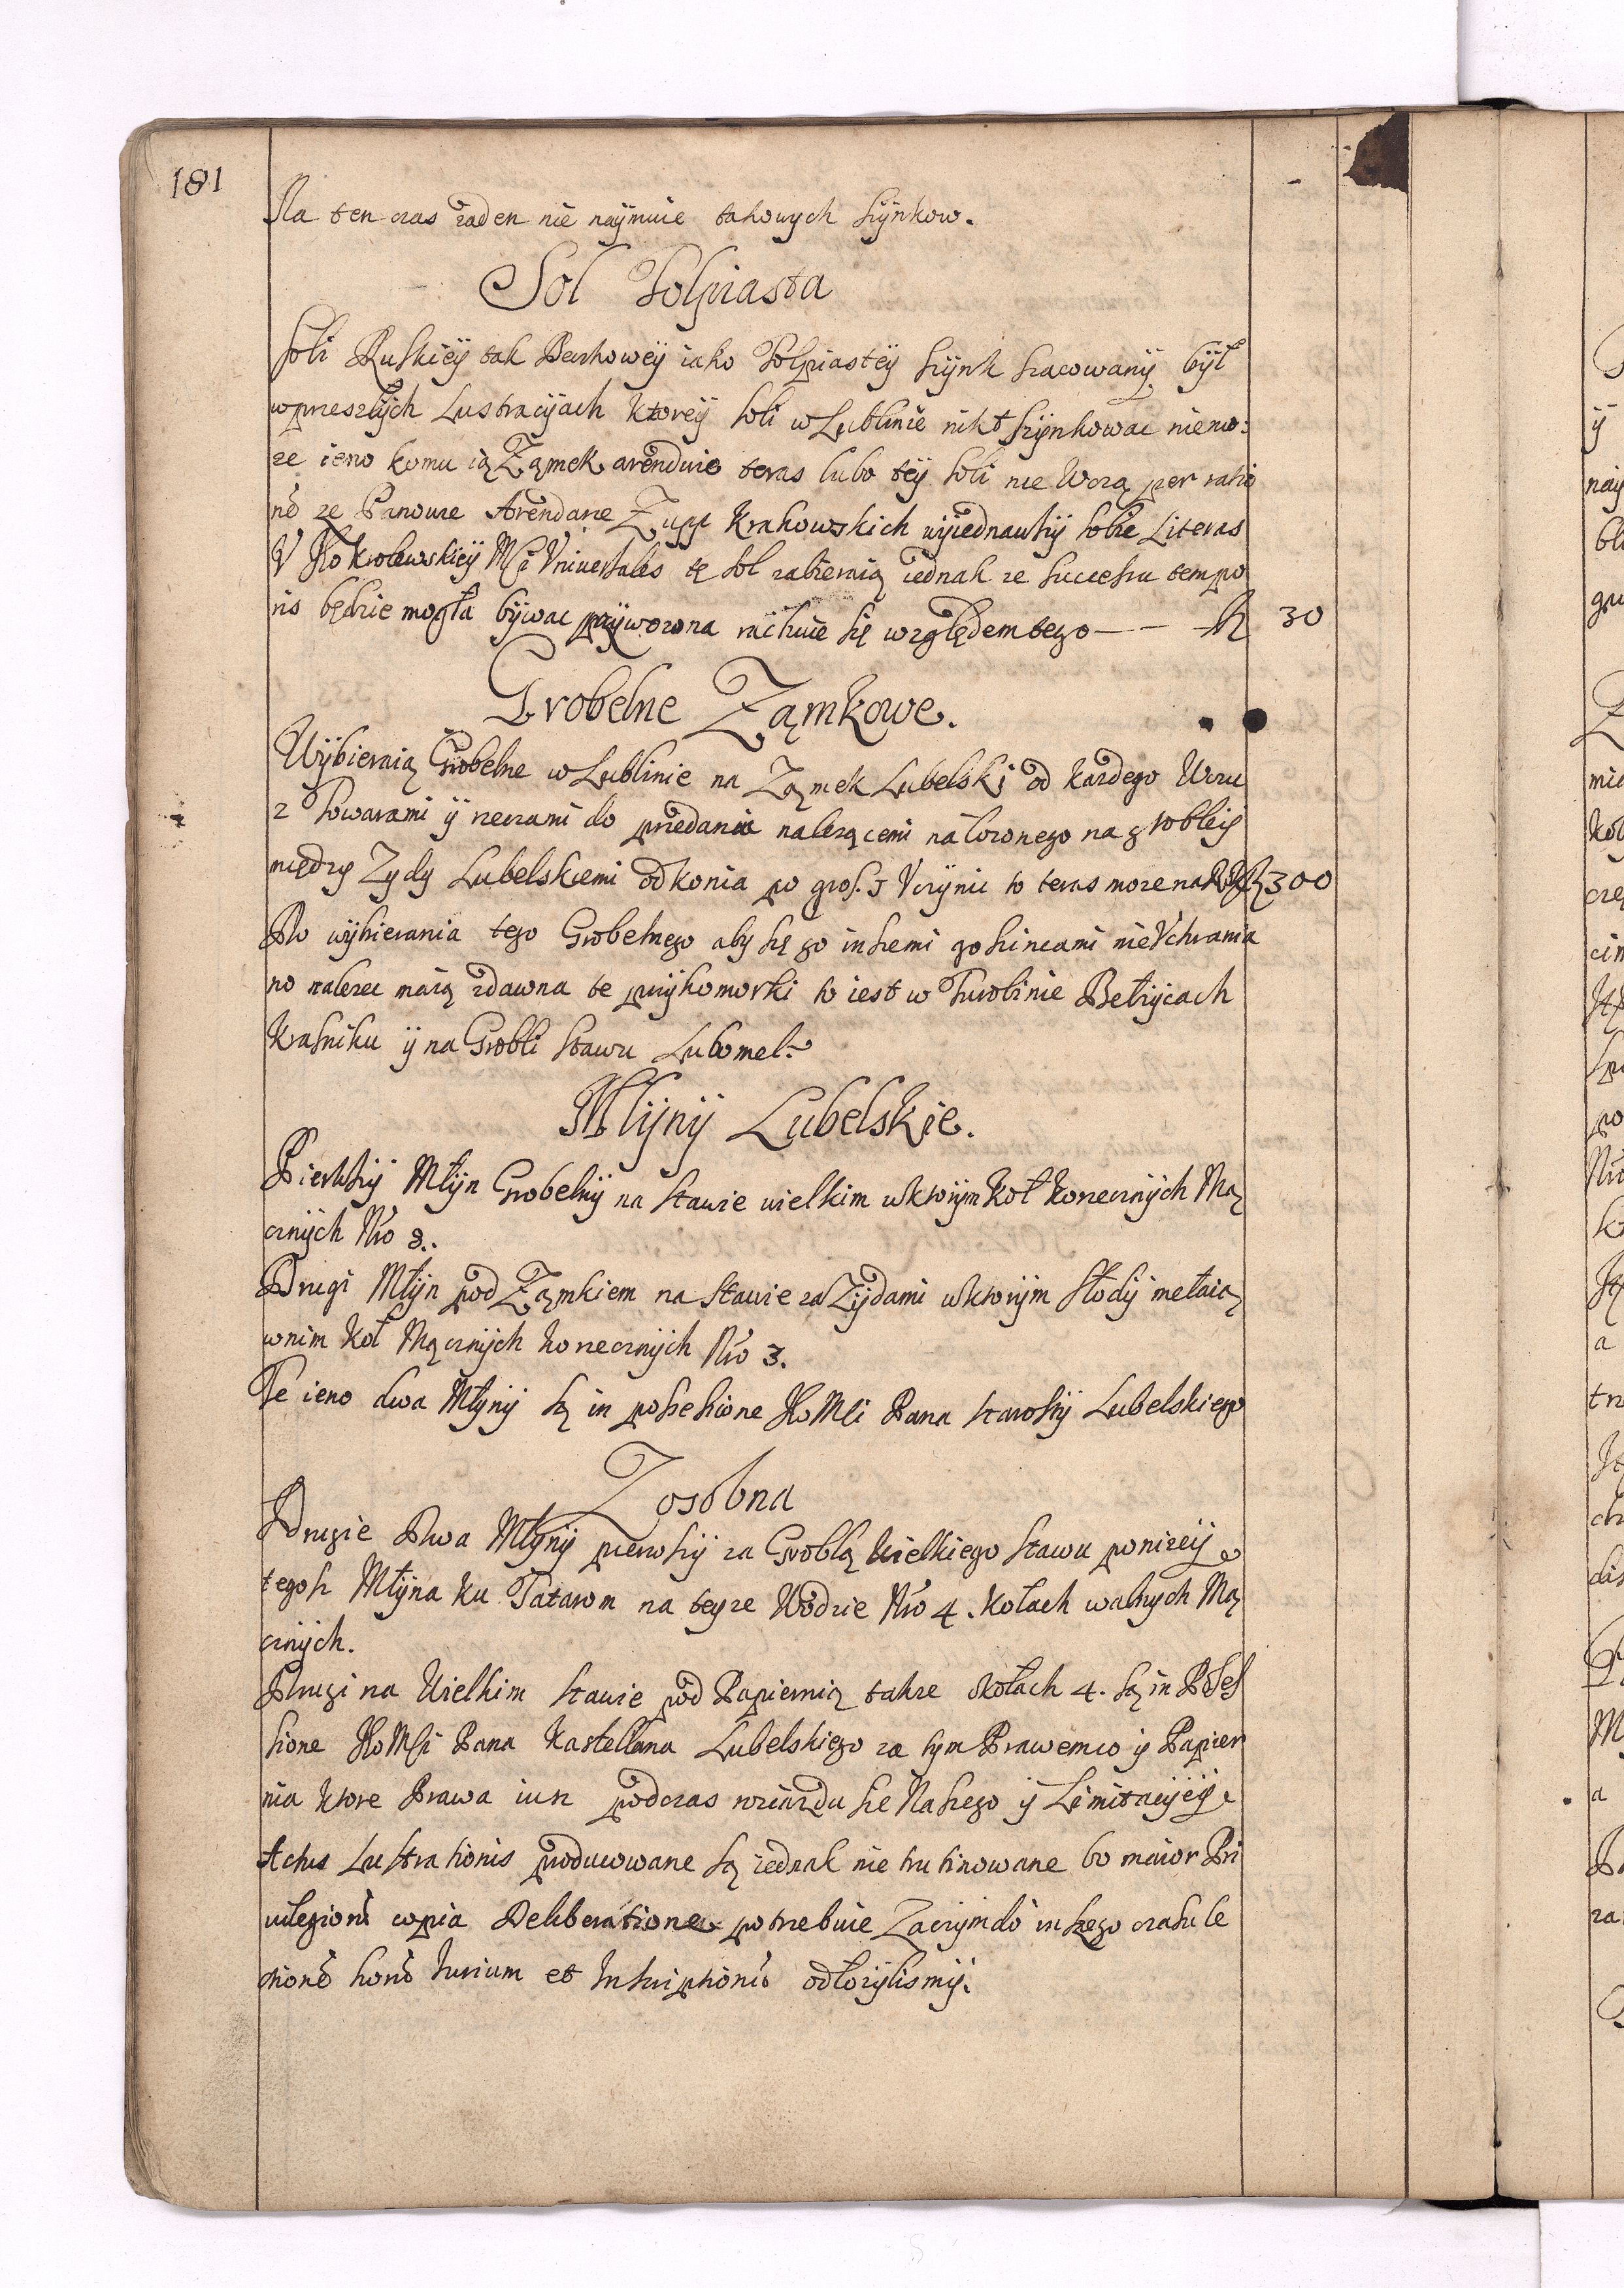 181
Na ten czas zaden nie naÿmuie takowych szÿnkow.
Sol Tolpiasta
Soli Ruskieÿ tak Beczkoweÿ iako Tolpiasteÿ szÿnk szacowanÿ bÿł
wprzeszłÿch Lustracÿach ktoreÿ soli w Lublinie nikt szÿnkowac niemo:
ze ieno komu ią Zamek arenduie teras lubo teÿ soli nie Wozą per ratio
nẽ ze Panowie Arendarze Zupp Krakowskich wÿiednawszÿ sobie Literas
V Jko Krolewskieÿ Mci Vniuersales tę sol zabieraią iednak ze successu tempo
ris będzie mogła bÿwac przÿwozona rachuie się względem tego — — fl 30
Grobelne Zamkowe.
Wÿbieraią Grobelne w Lublinie na Zamek Lubelski od kazdego Wozu
z Towarami ÿ rzeczami do przedania nalezącemi nałozonego na grobleÿ
między Zydy Lubelskiemi od konia po gros. J Vczÿnic to teras moze na Rok fl 300
Do wÿbierania tego Grobelnego aby się go inszemi goscincami nie Vchrania
no nalezec maią zdawna te przÿkomorki to iest w Turobinie Bełzÿcach
Krasniku ÿ na Grobli Stawu Lubomel:
Młÿnÿ Lubelskie.
Pierwszÿ Młÿn Grobelnÿ na Stawie wielkim wktorÿm Koł korzecznÿch Mą
cznÿch Nro 8..
Drugi Młÿn pod Zamkiem na Stawie za Zÿdami wktorÿm Słodÿ mełaią
wnim Koł Mącznÿch korzecznÿch Nro 3.
Te ieno dwa Młÿnÿ są in possessione Jko Msci Pana Starostÿ Lubelskiego
Zosobna
Drugie Dwa Młÿnÿ pierwszÿ za Groblą Wielkiego Stawu ponizeÿ
tegosz Młÿna ku Tatarom na teyze Wodzie Nro 4. Kołach walnych Mą
cznÿch.
Drugi na Wielkim Stawie pod Papiernią takze okołach 4. są in Posses
sione Jko Msci Pana Kasztellana Lubelskiego za tym Prawem co ÿ Papier
nia ktore Prawa iusz podczas roziazdu sie Naszego ÿ Limitacÿeÿ
Actus Lustrationis producowane są iednak nie trutinowane bo maior Pri
uilegiorũ copia Deliberatione potrzebuie Zaczÿm do inszego czasu le
ctionẽ horũ Iurium et Inscriptionũ odłozÿlismÿ.